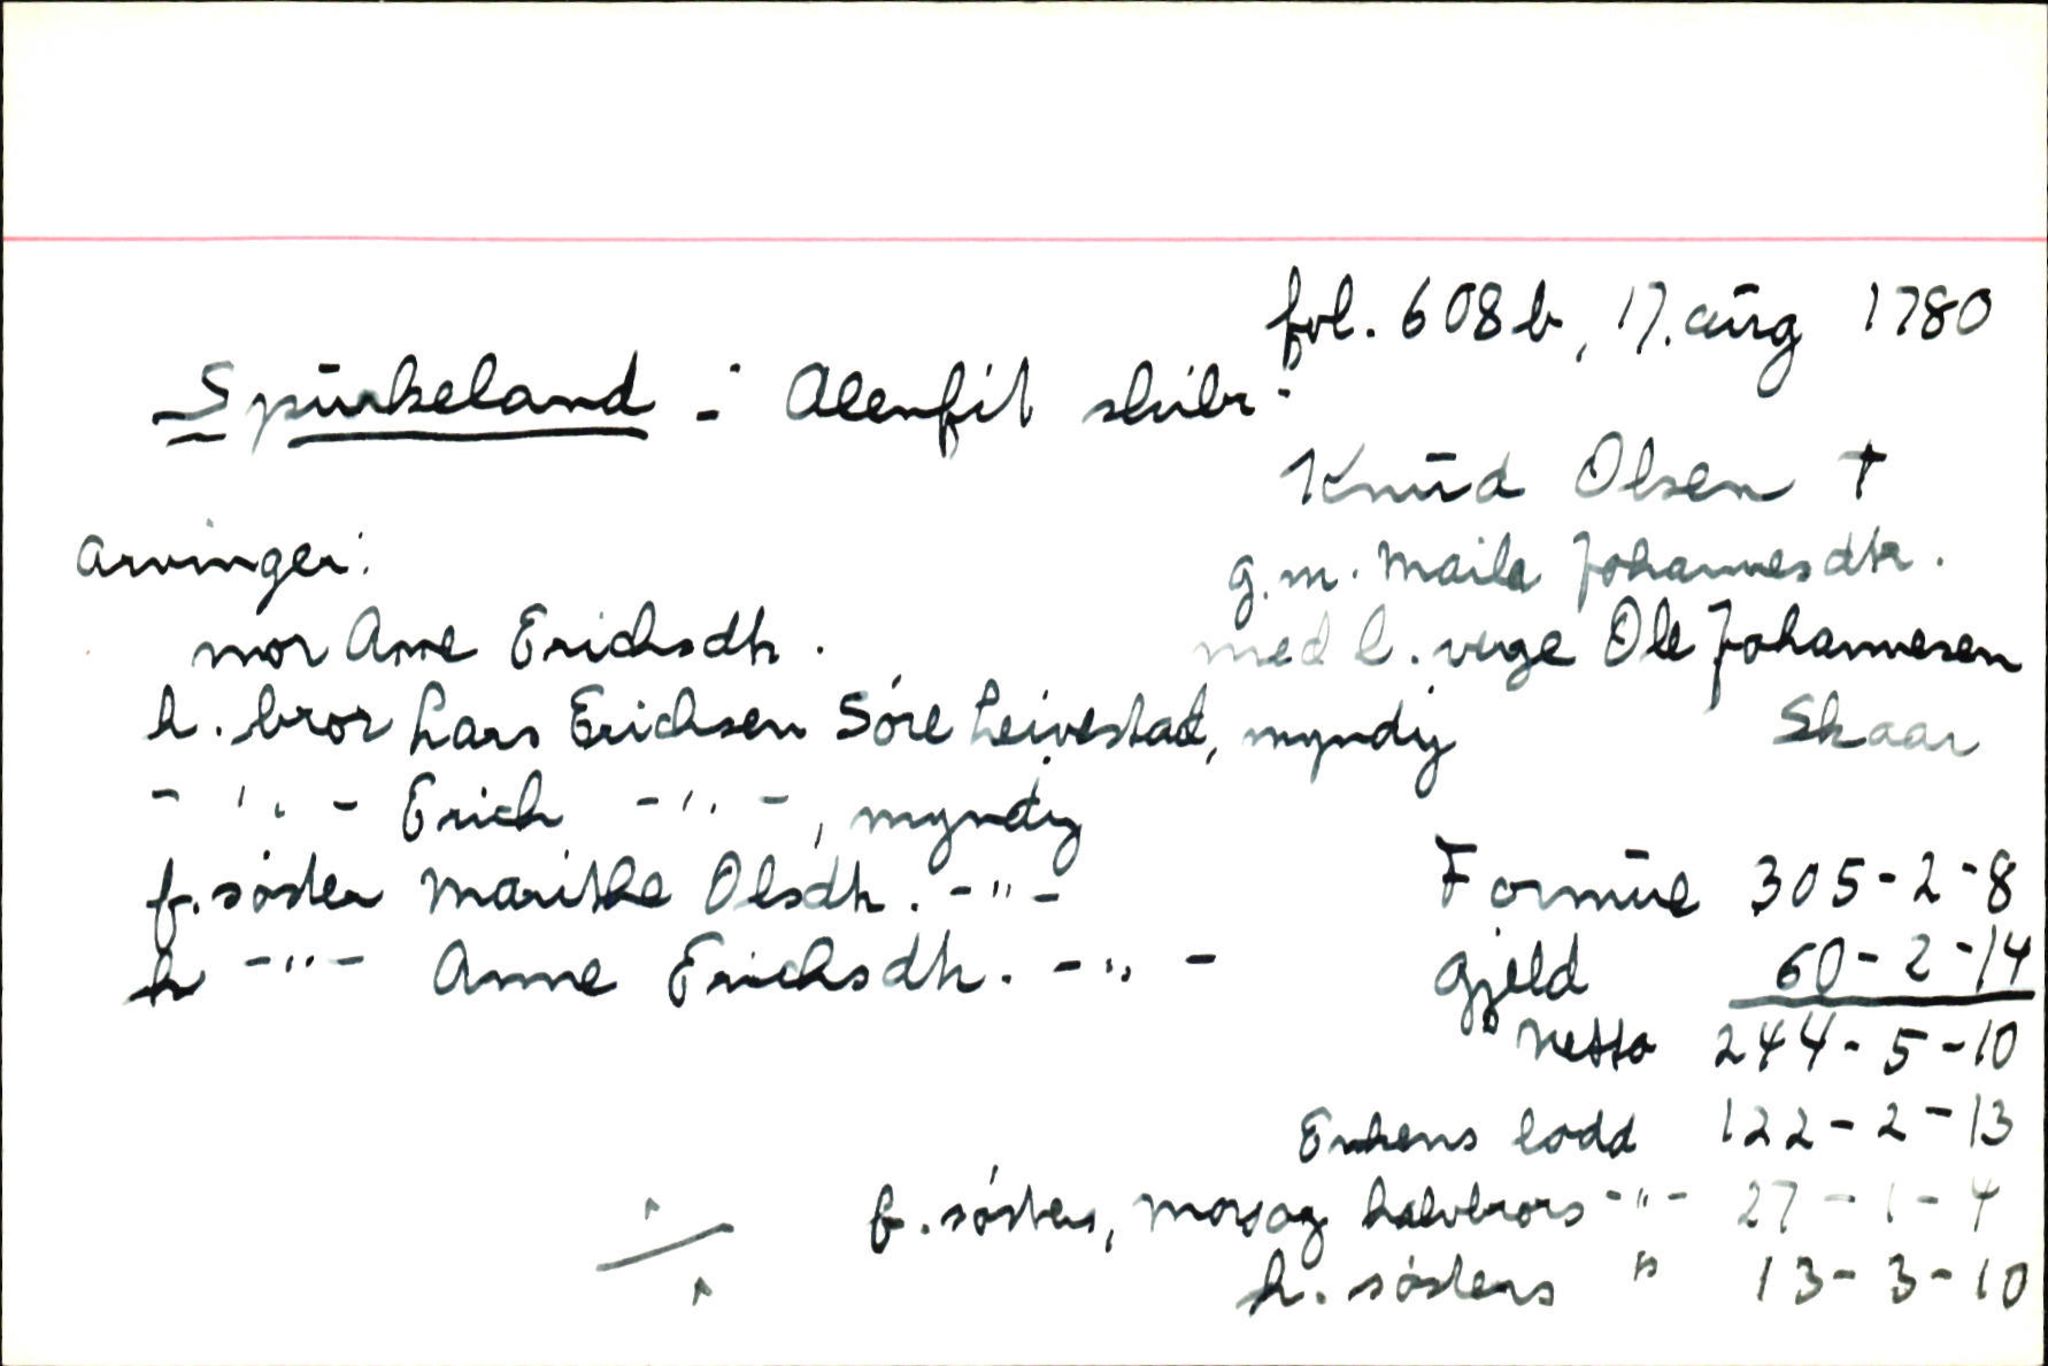 fol. 608 b, 17. aug 1780
Spurkeland - Alenfit skibr -
Knud Olsen †
arvinger:
g. m. Maila Johannesdtr.
mor Anne Erichsdtr.
med l. verge Ole Johannesen
Skaar
h. bror Lars Erichsen Söre Leivestad, myndig
- " - Erich - " -, myndig
f. söster Marithe Olsdtr. - " -
h - " - Anne Erichsdtr. - " -
Formue 305-2-8
Gjeld 60-2-14
Netto 244-5-10
Enkens lodd 122-2-13
f. östers, mors og halvbrors - " - 27-1-4
h. sösters " 13-3-10